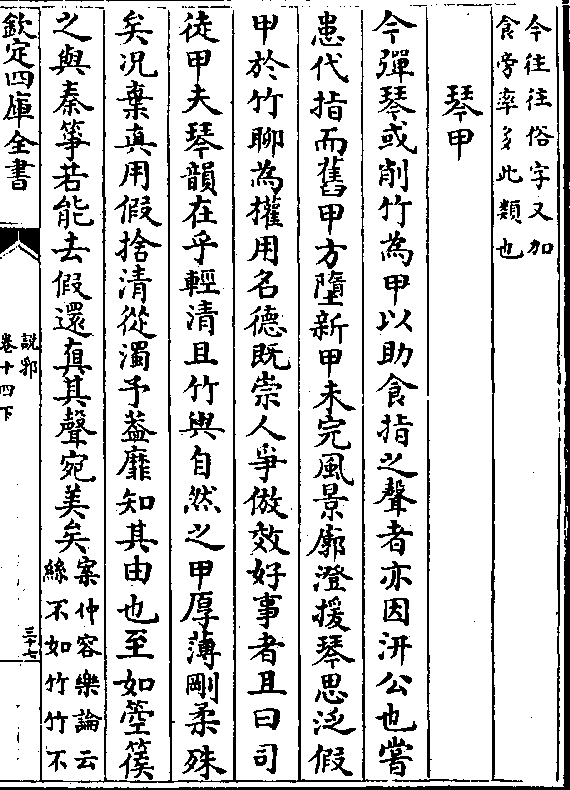 今往往俗字又加
食旁率多此類也
琴甲
今彈琴或削竹為甲以助食指之聲者亦因汧公也嘗
患代指而舊甲方墮新甲未完風景廓澄援琴思泛假
甲於竹聊為權用名德既崇人爭倣效好事者且曰司
徒甲夫琴韻在乎輕清且竹與自然之甲厚薄剛柔殊
矣况棄真用假捨清從濁予葢靡知其由也至如箜篌
之與秦箏若能去假還真其聲宛美矣
案仲容樂論云
絲不如竹竹不
欽定四庫全書
說郛
卷十四下
三十七